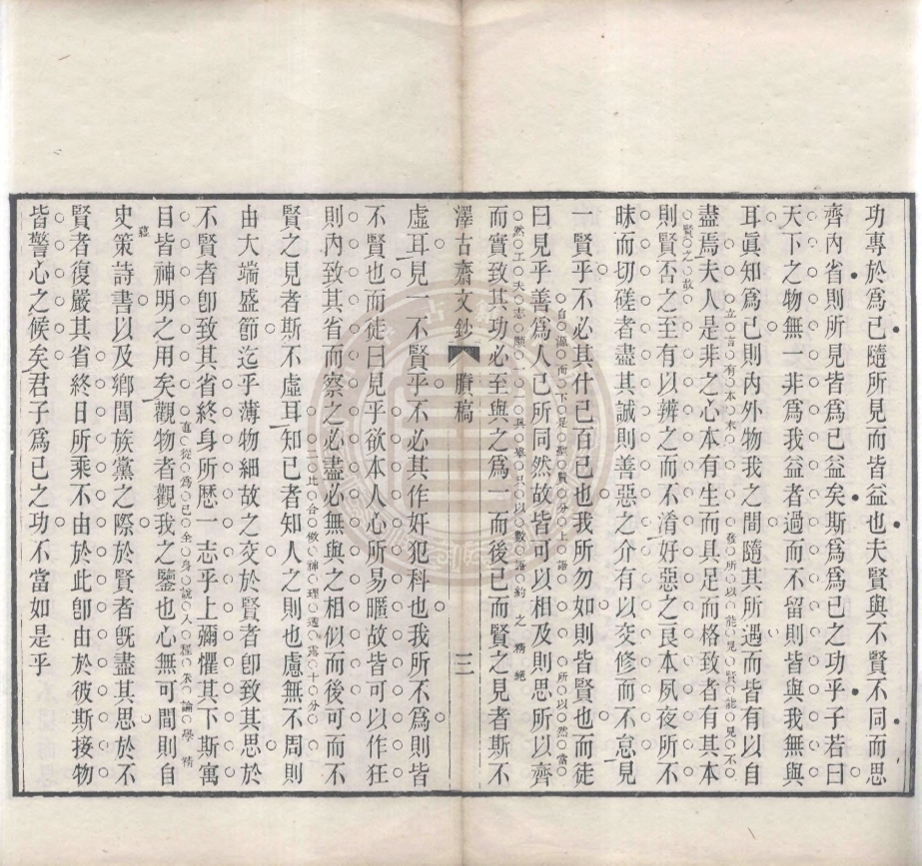 功專於爲己隨所見而皆益也夫賢與不賢不同而思
齊內省則所見皆爲己益矣斯爲爲己之功乎子若曰
天下之物無一非爲我益者過而不留則皆與我無與
耳眞知爲己則內外物我之間隨其所遇而皆有以自
立言有本末
發所以能見賢能見不
盡焉夫人是非之心本有生而具足而格致者有其本
則賢否之至有以辨之而不淆好惡之良本夙夜所不
賢之故
昧而切磋者盡其誠則善惡之介有以交修而不怠見
一賢乎不必其什己百己也我所勿如則皆賢也而徒
自源而下是謝賢分上語
所以然當
曰見乎善爲人己所同然故皆可以相及則思所以齊
然工夫志願一
與畢只以數語約之精絕
而實致其功必至與之爲一而後已而賢之見者斯不
澤古齋文鈔
賸稿
三
虛耳見一不賢乎不必其作奸犯科也我所不爲則皆
不賢也而徒曰見乎欲本人心所易暱故皆可以作狂
則內致其省而察之必盡必無與之相似而後可而不
二比合做神理透露十分
賢之見者斯不虛耳知己者知人之則也慮無不周則
由大端盛節迄乎薄物細故之交於賢者卽致其思於
不賢者卽致其省終身所歷一志乎上彌懼其下斯寓
從爲己全身說入程朱論學精
目皆神明之用矣觀物者觀我之鑒也心無可間則自
蘊
史策詩書以及鄉閭族黨之際於賢者旣盡其思於不
賢者復嚴其省終日所乘不由於此卽由於彼斯接物
皆警心之候矣君子爲己之功不當如是乎